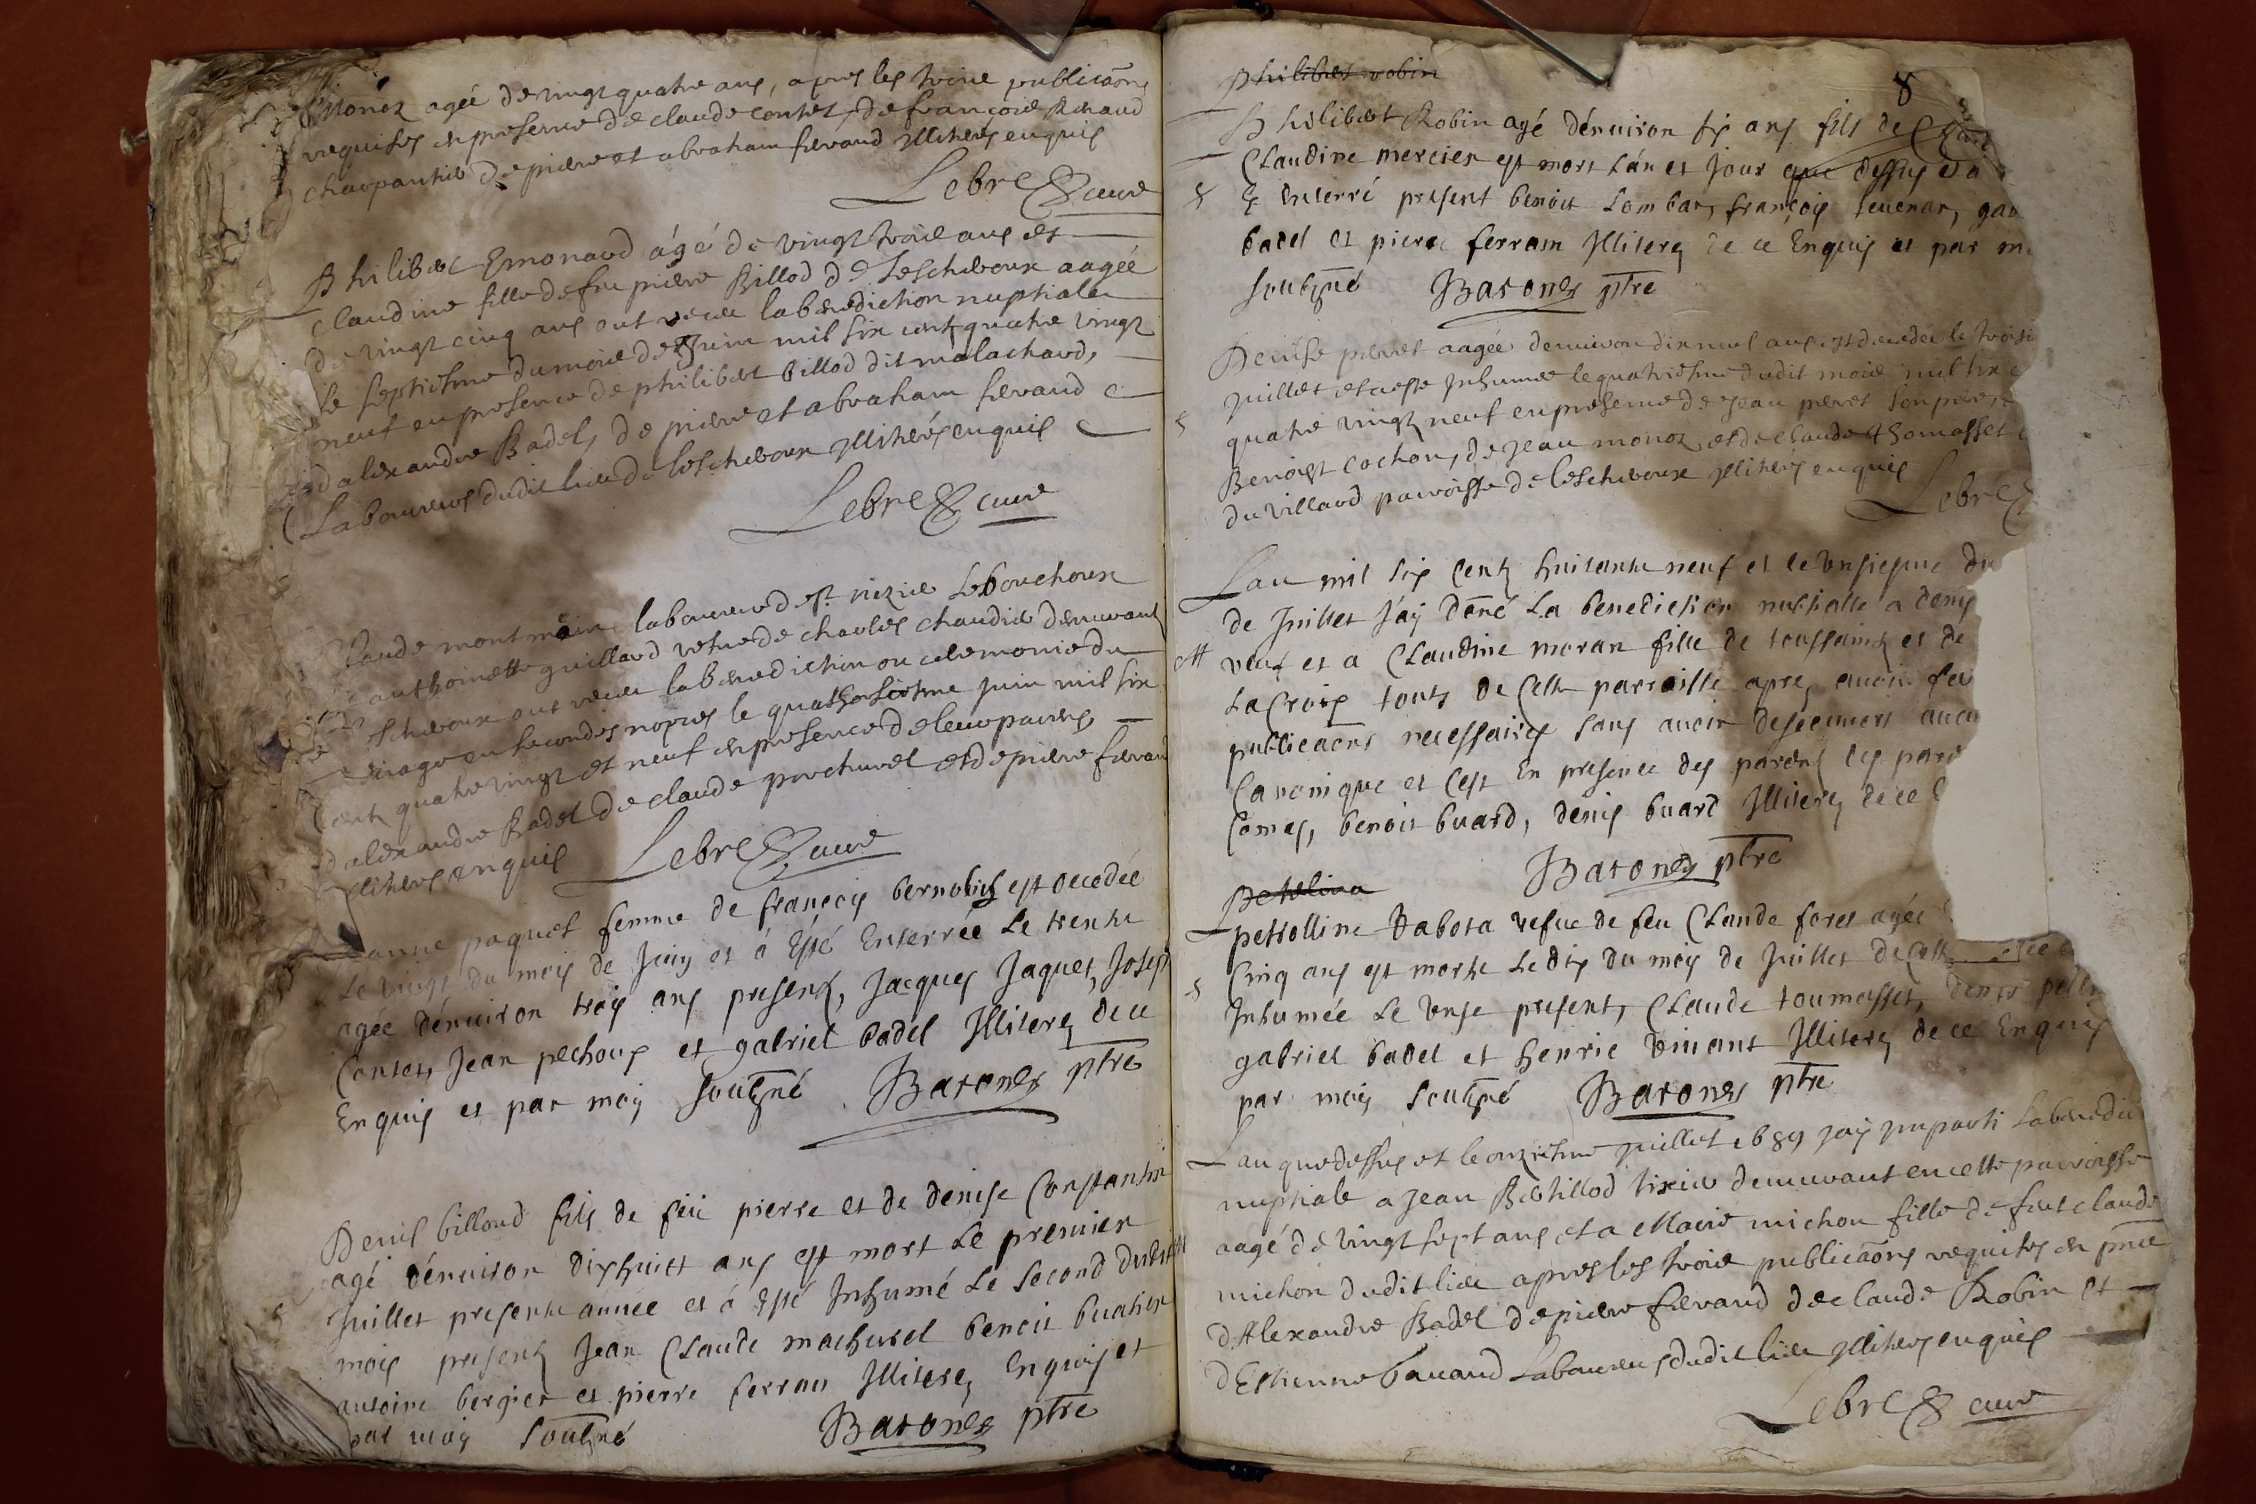 Monoz agée de vingt quatre ans, apres les troiie publicaõns
requises en presence de claude contet, de francoiie Renaud
charpantier de piere et abraham fievaud Illiterés enquis
Lebre curé
Philibert Emonaud ágé de vingt troiie ans et
claudine fille de feu piere Billod de Lescheroux aagée
de vingt cinq ans ont receu la benediction nuptiale
le septiesme du moiie de Juin mil six cent quatre vingt
neuf en presence de philibert billod dit malachard,
d'alexandre Badel, de piere et abraham fievaud
Laboureurs dudit lieu de lescheroux Illiterés enquis
Lebre curé
laude montmain laboureur de st nizier Lebouchoux
anthoinette guillard vefue de charles chaudie demeurant
scheroux ont receu la benediction ou ceremonie du
riage en secondes nopces le quathorsiesme juin mil six
cent quatre vingt et neuf en presence de leurs parens
d'alexandre Badel de claude porchurel et de piere fievau
Illiterés enquis
Lebre curé
anne paquet femme de françois est decedée
Le vingt du mois de Juin et á esté Enterrée Le trente
agée d'enuiron trois ans presents, Jacques Jaquet, Josep
Contet, Jean pechoux et gabriel badel Illiterez de ce
Enquis et par moy soubzné Baronet ptre
Denis billoud fils de feü pierre et de denise Constantin
agé d'enuiron dixhuict ans est mort Le premier
Juillet presente année et á esté Inhumé Le second dudit
mois presents Jean Claude machurel benoit buatier
antoine bergier et pierre ferran Illiterez Enquis et
par moy soubzné Baronet ptre
8
Philibert robin
Philibert Robin agé d'enuiron six ans fils de
Claudine mercier est mort L'an et Jour que dessus et a
Enterré present benoit Lombar, françois seuenar, ga
badel et pierre ferram Illiterez de ce Enquis et par m
soubzné Baronet ptre
S
Denise perret aagée denuiron dix neuf ans est decedée le troisi
juillet et a esté Inhumée le quatriesme dudit moiie mil six c
quatre vingt neuf en presence de Jean perret son pere,
Benoist cochon, de Jean monoz et de claude thomasset
du villard paroisse de lescheroux Illiterés enquis
Lebre
S
L'an mil six Cent huitante neuf et le unsiesme du
de Juillet J'ay doñé La benediction nuptialle a denis
veuf et a Claudine moran fille de toussaint et de
La Croix touts de Cette parroisse apres auoir fai
publicaõns necessaires sans auoir descouuert aucu
Canonique et C'est En presence des parents
Comas, benoit buard, denis buard Illiterez de ce
Baronet ptre
M
Petrolina
petrolline Rabota vefue de feu Claude foret agée
Cinq ans est morte Le dix du mois de Juillet de Cette
Inhumée Le unse present, Claude toumasset, denis
gabriel badel et henrie vinant Illiterez de ce Enquis
par moy soubzné Baronet ptre
S
L'an que dessus et le onziesme juillet 1689 j'ay Imparti La benedic
nuptiale a Jean Berthillod tixier demeurant en cette paroisse
aagé de vingt sept ans et a Marie michon fille de feu claude
michon dudit lieu apres les troiie publicaõns requises en pñce
d'Alexandre Badel de piere fievaud de claude Robin et
d'Estienne bavaud Laboureurs dudit lieu Illiterés enquis
Lebre curé